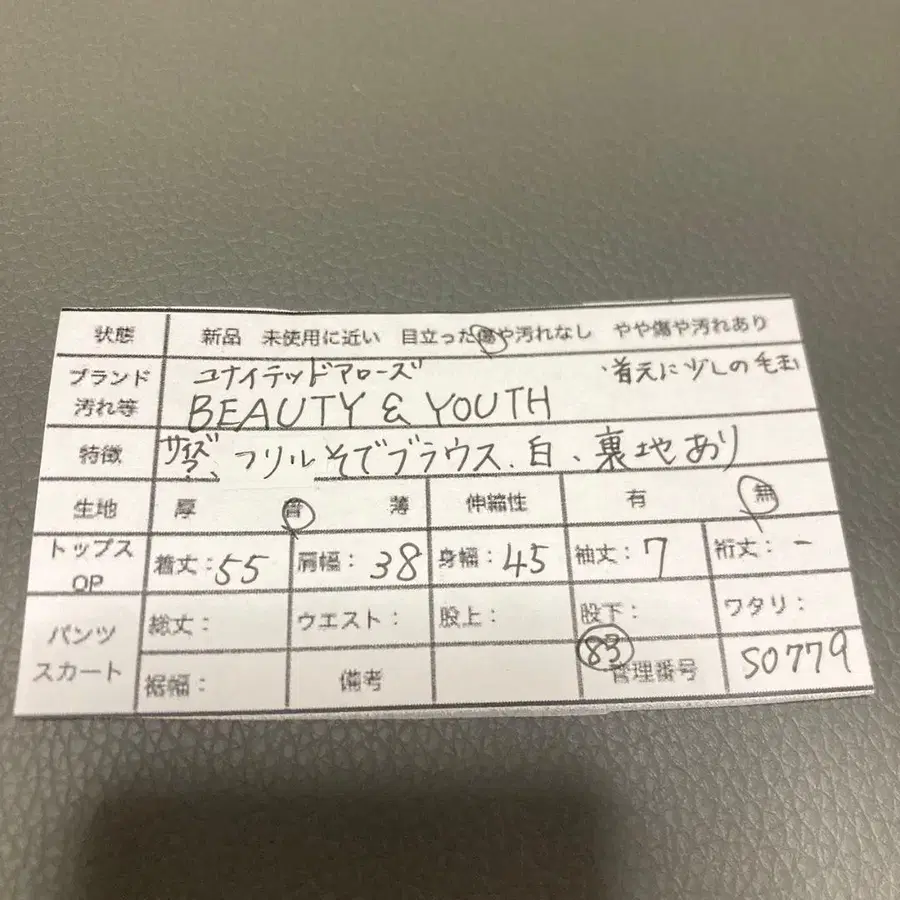 状態 新品 未使用に近い 目立った傷や汚れなし やや傷や汚れあり
ブランド 汚れ等 ユナイテッドアローズ
BEAUTY & YOUTH
に少しの毛玉
特徴 サイズ? フリルそでブラウス、白、裏地あり
生地 厚 普 薄 伸縮性 有 無
トップス OP 着丈:55 肩幅:38 身幅:45 袖丈:7 裄丈:-
パンツ スカート 総丈: ウエスト: 股上: 股下: ワタリ:
裾幅: 備考 83 管理番号 S0779